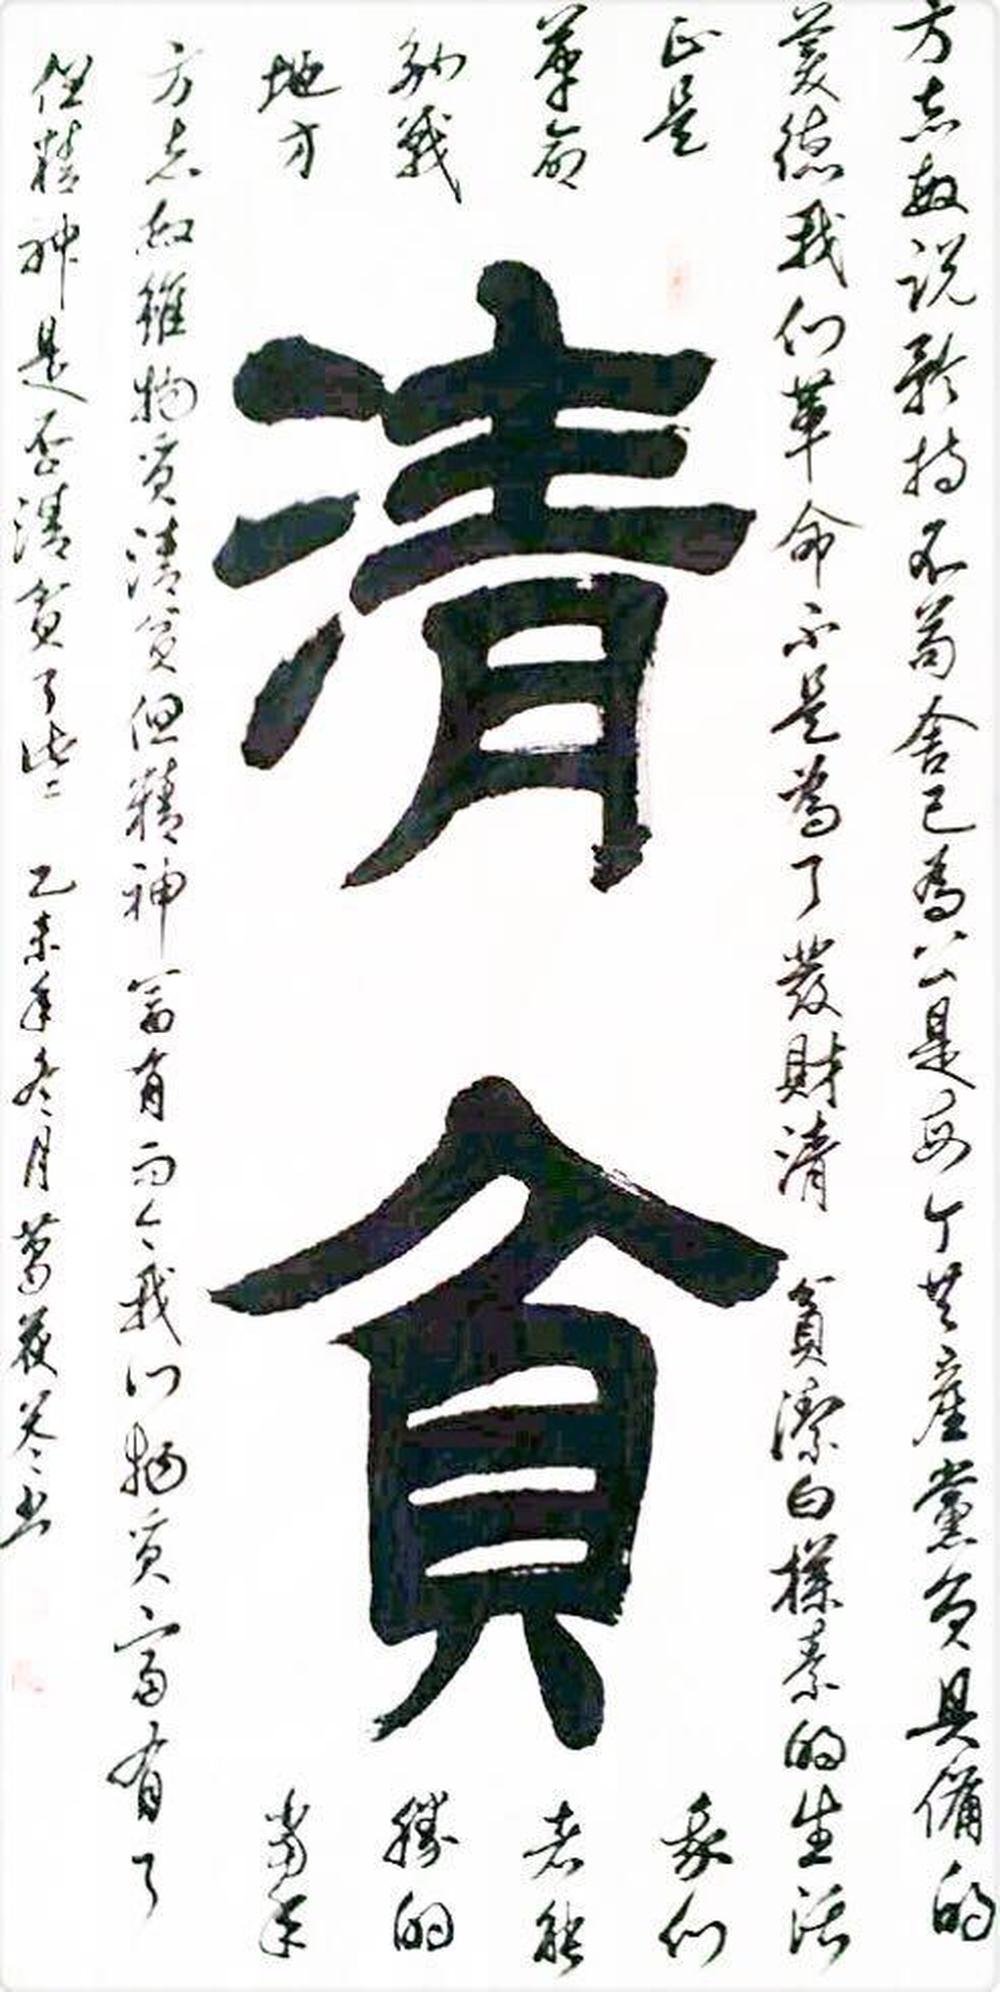 方志敏说矜持不苟舍己為公是每个共產黨員具備的
美德我们革命不是為了發財清貧潔白樸素的生活
正是我们
革命者能
夠戰勝的
地方當年
清貧
方志敏雖物質清貧但精神富有而今我们物質富有了
但精神是否清貧了些 乙未年冬月葛书